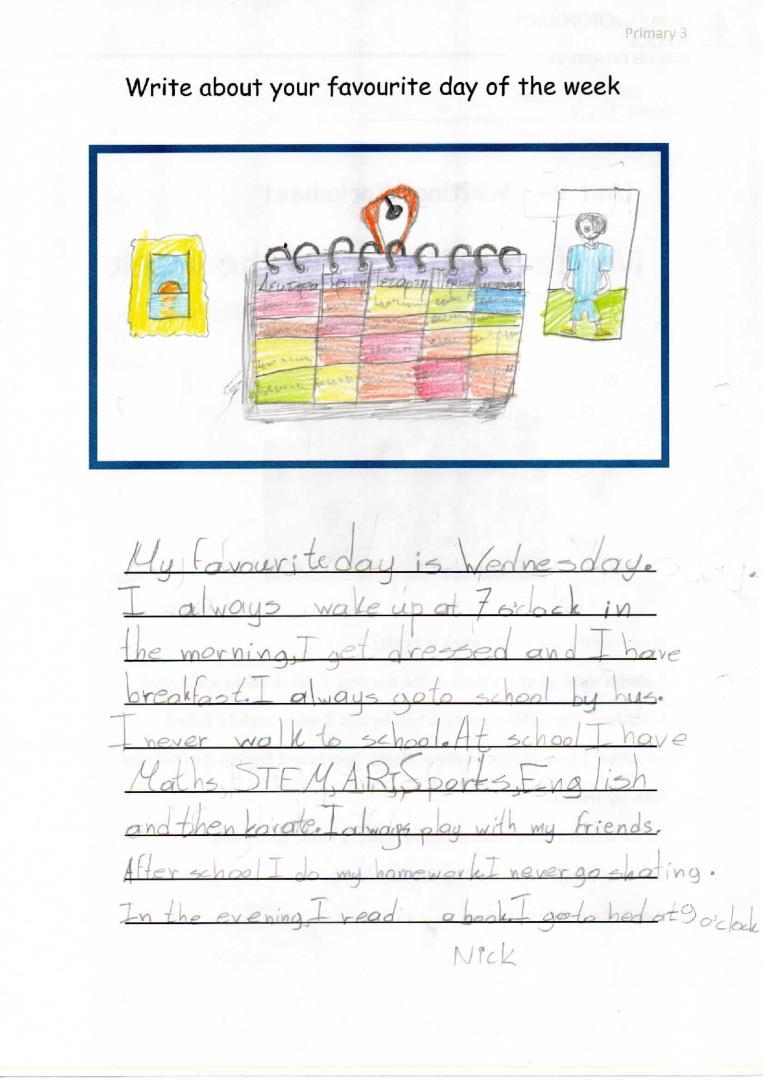 Primary 3
Write about your favourite day of the week
Δευτέρα Τρίτη Τετάρτη
My favourite day is Wednesday.
I always wake up at 7 o'clock in
the morning,I get dressed and I have
breakfast.I always go to school by bus.
I never walk to school.At school I have
Maths,STEM,ART,Sports,English
and then karate.I always play with my friends.
After school I do my homework.I never go skating.
In the evening,I read a book.I go to bed at 9 o'clock
Nick